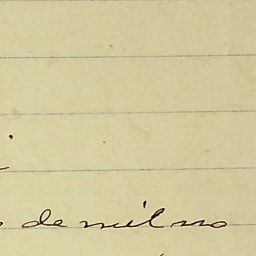 de mil no